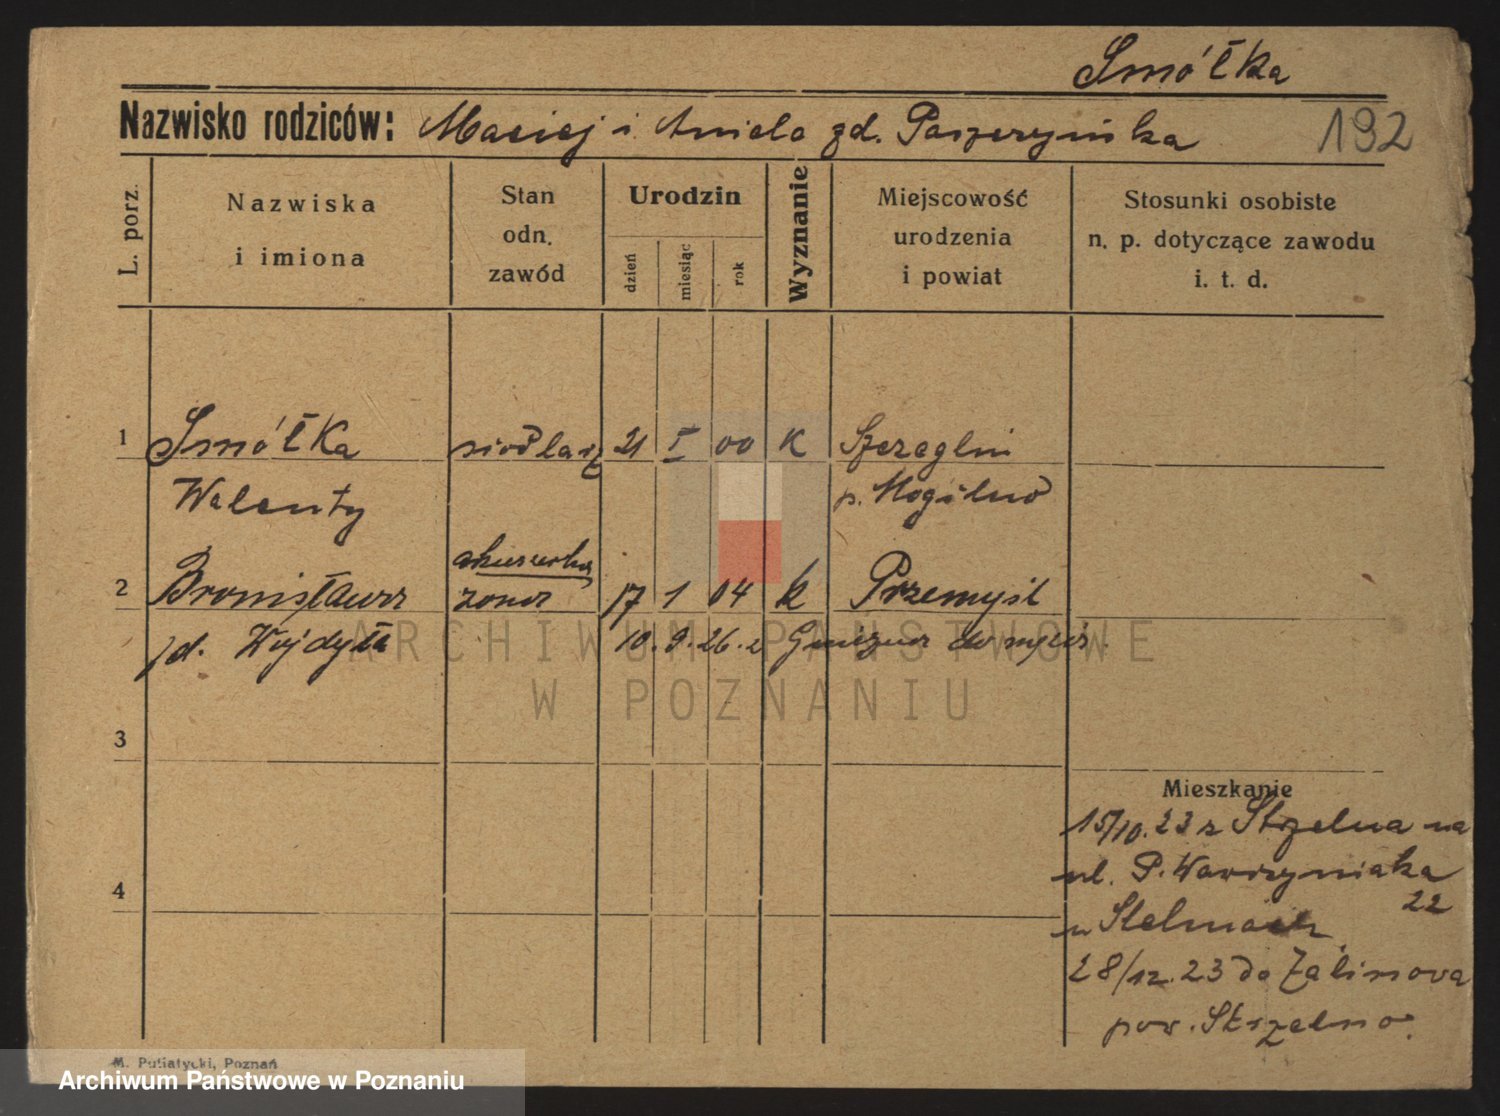 Smółka
Nazwisko rodziców: Maciej i Aniela zd. Paszczyńska
192
L. porz.
Nazwiska
i imiona
Stan
odn.
zawód
Urodzin
dzień
miesiąc
rok
Wyznanie
Miejscowość
urodzenia
i powiat
Stosunki osobiste
n. p. dotyczące zawodu
i. t. d.
1 Smółka siodlarz 21 I 00 K Szczeglin
Walenty p. Mogilno
akuszerka
2 Bronisława żona 17 1 04 k Przemyśl
zd. Wojdyła 10. 9. 26. z do męża.
ARCHIWUM PAŃSTWOWE
W POZNANIU
3
Mieszkanie
15/10. 23 z Strzelna na
ul. P. Wawrzyniaka
4
22
u Stelmach
28/12. 23 do
pow. Strzelno.
M. Putiatycki, Poznań
Archiwum Państwowe w Poznaniu